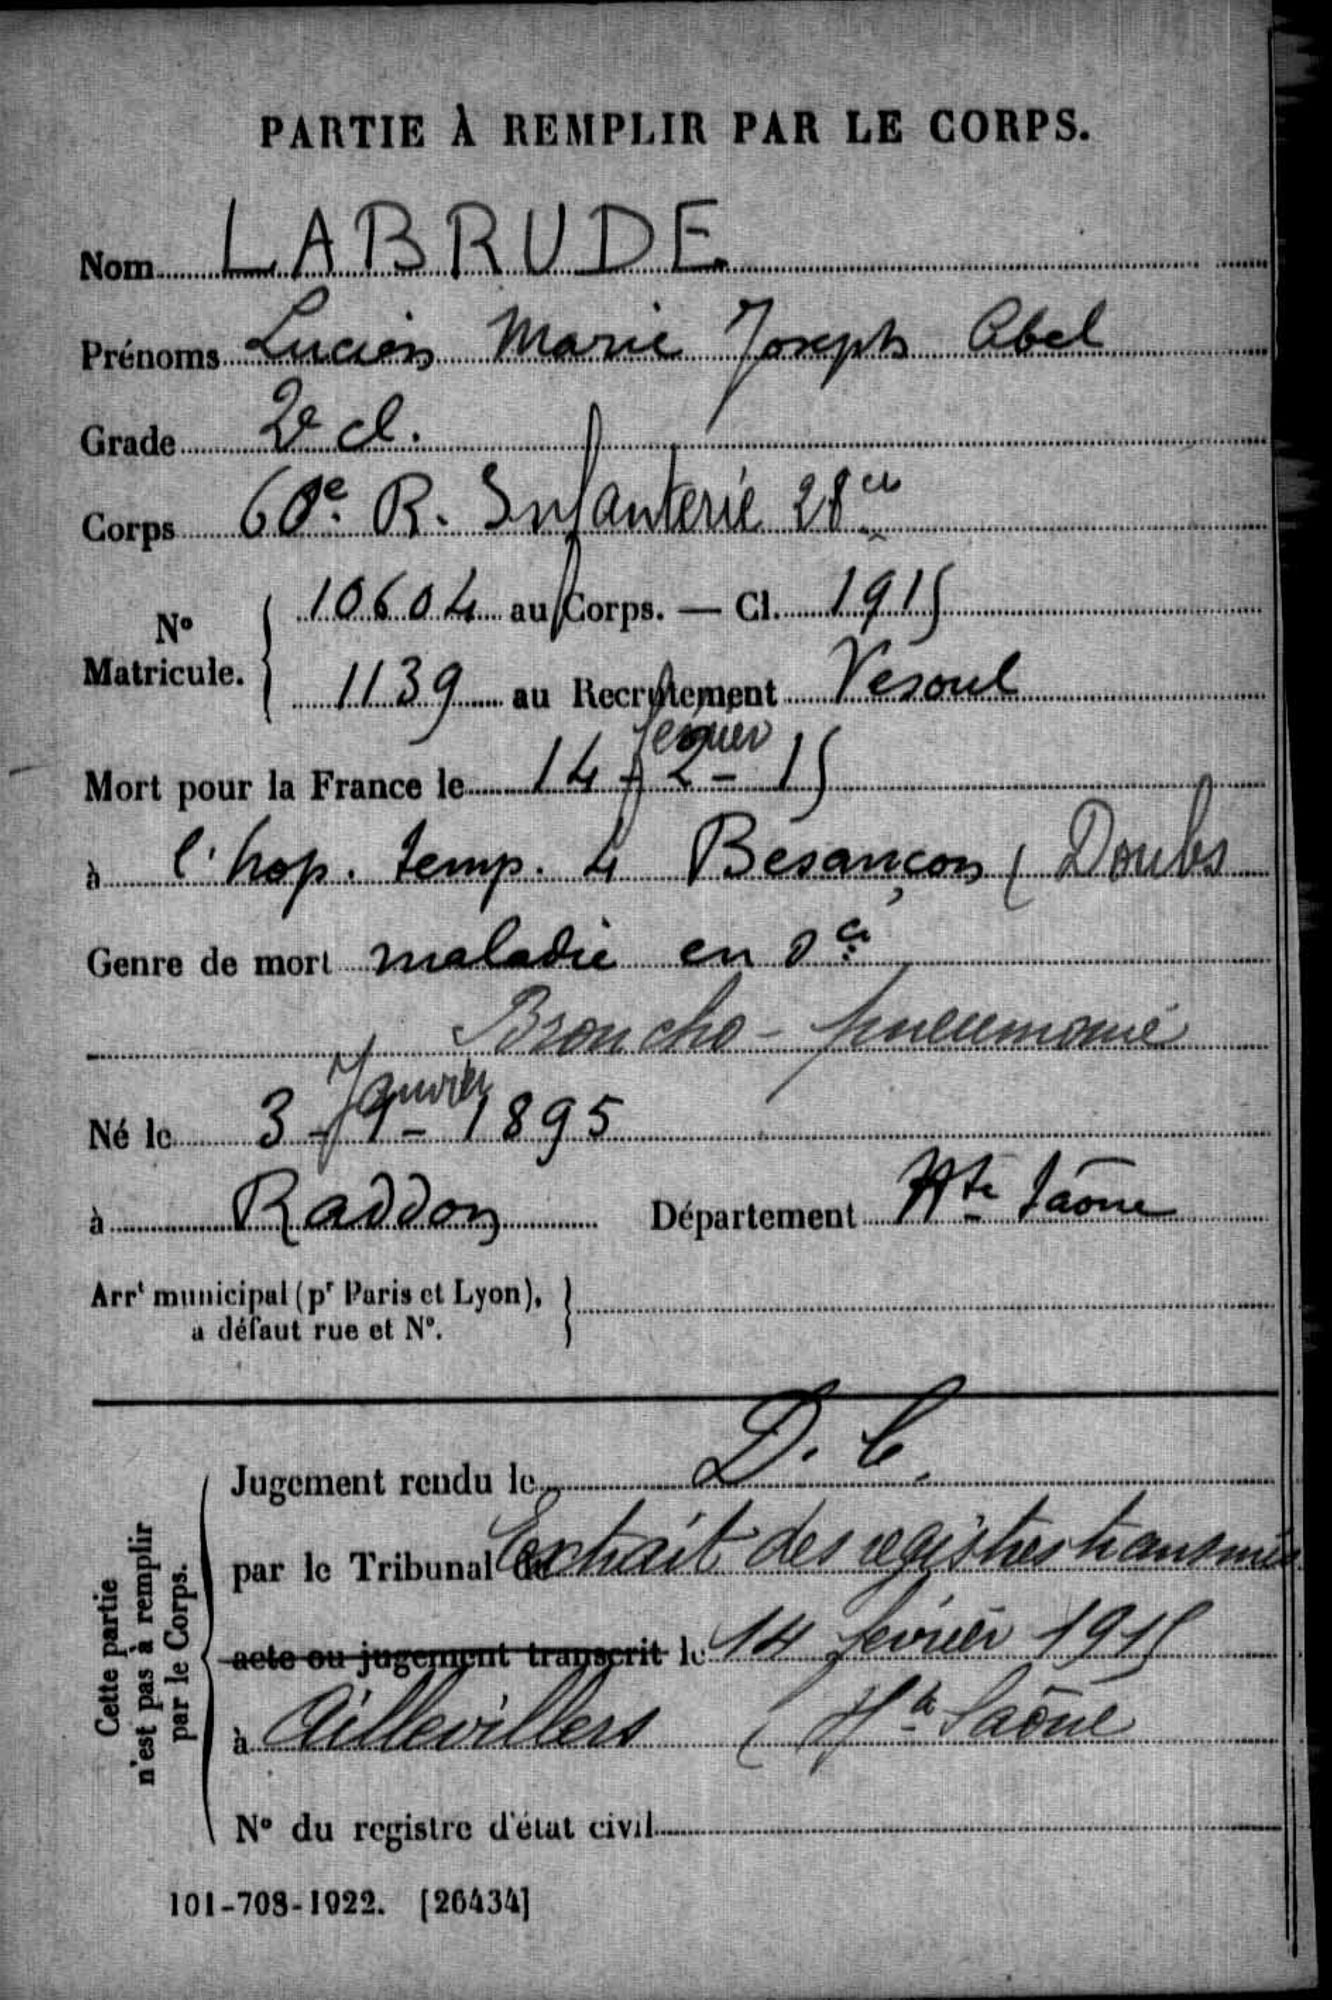 PARTIE À REMPLIR PAR LE CORPS.
Nom LABRUDE
Prénoms Lucien Marie Joseph Abel
Grade 2e cl.
Corps 60e R. Infanterie 28e cie
N° Matricule. 10604 au Corps. — Cl. 1915
1139 au Recrutement Vesoul
février
Mort pour la France le 14-2-15
à l'hop. temp. 4 Besançon (Doubs
Genre de mort maladie en
Broncho-pneumonie
Janvier
Né le 3-1-1895
à Raddon Département Hte Saône
Arrt municipal (pr Paris et Lyon),
a défaut rue et N°.
Cette partie
n'est pas à remplir
par le Corps.
Jugement rendu le D. C.
par le Tribunal de Extrait des registres transmis
acte ou jugement transcrit le 14 février 1915
à Aillevillers (Hte Saône
N° du registre d'état civil
101-708-1922. [26434]